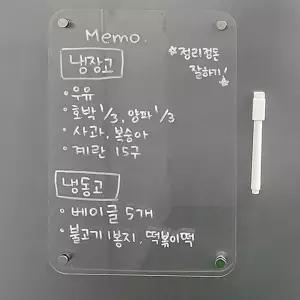 Memo.
*정리정돈
잘하기!*
냉장고
·우유
·호박 1/3, 양파 1/3
·사과, 복숭아
·계란 15구
냉동고
·베이글 5개
·불고기 1봉지, 떡볶이떡